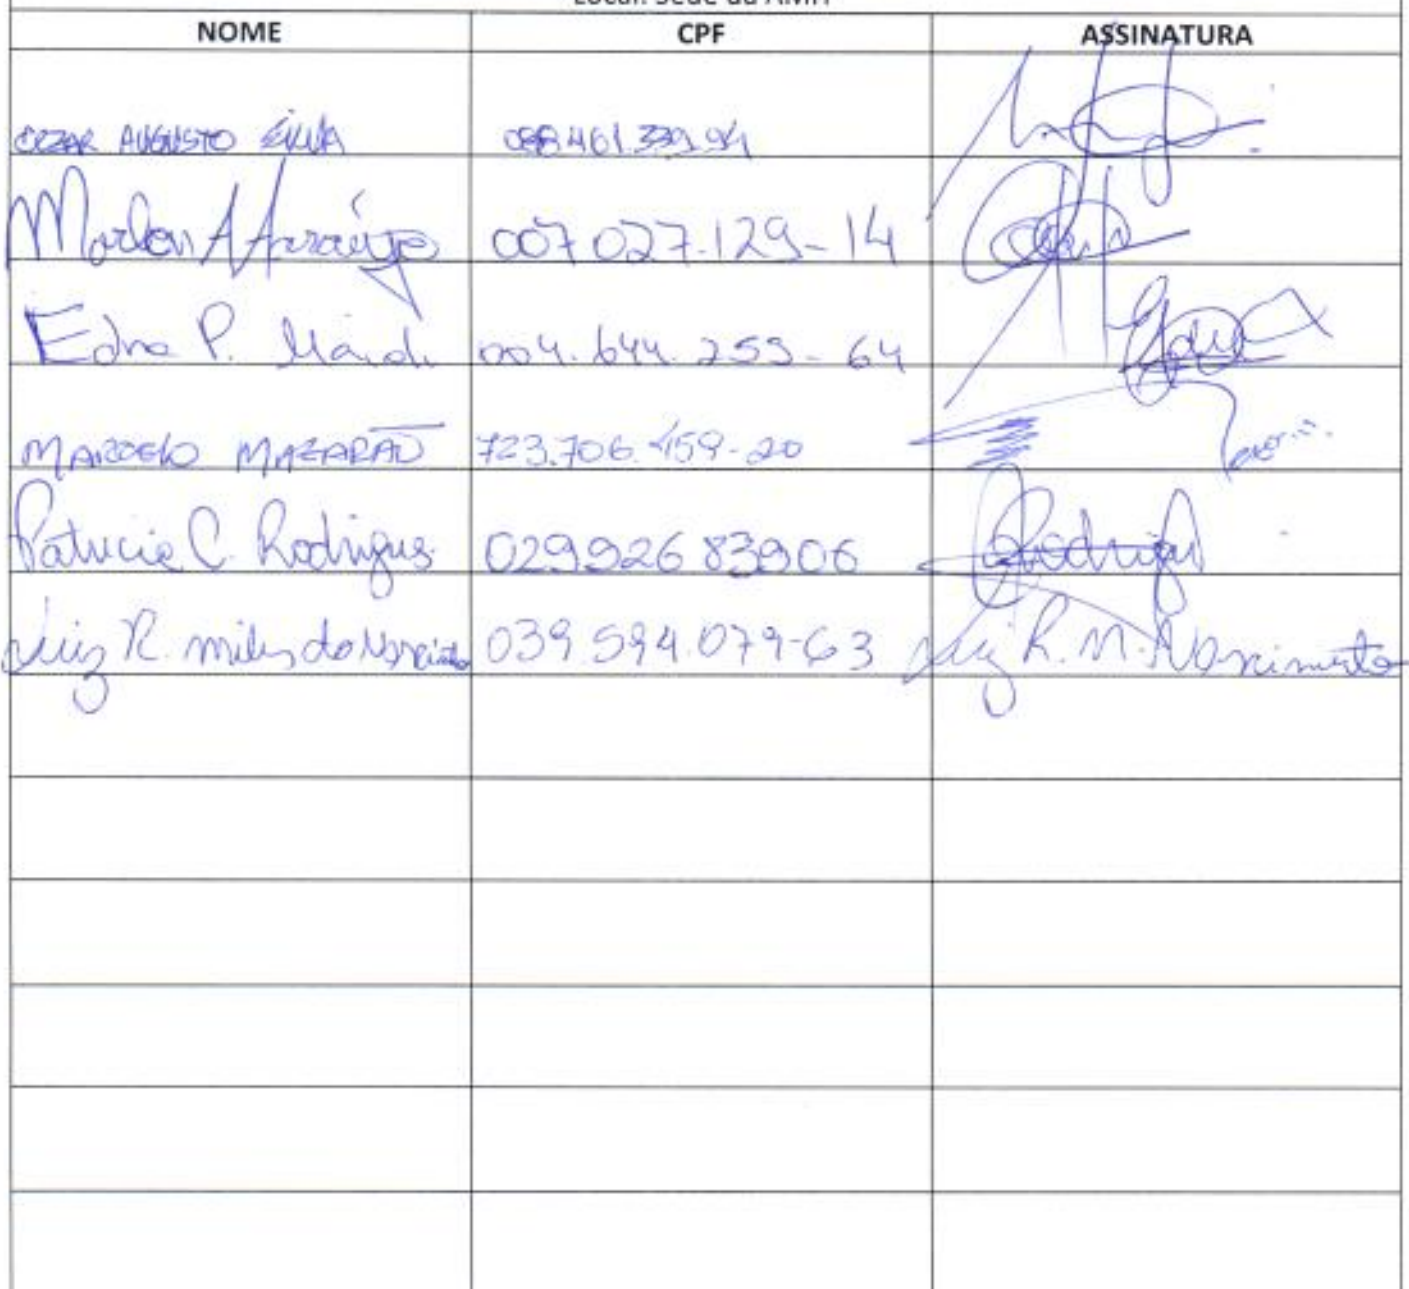 NOME CPF ASSINATURA
CEZAR AUGUSTO SILVA
Marlon A Araújo 007 027.129-14
Edna P. 004.644.259-64
MARCELO MAZARÃO 723.706.459-20
Patricia C. Rodrigues 029926 83906 Rodrigues
Luiz R. miles do Nascimento 039.594.079-63 Luiz R. M. Nascimento